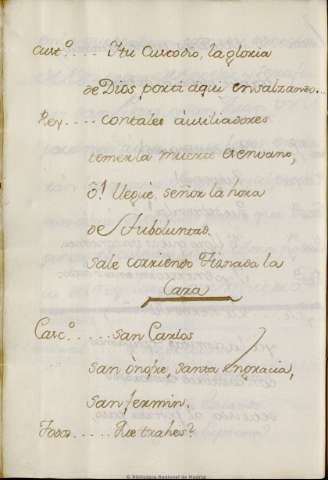 Cust.º .... Itu Custodio, la gloria
de Dios, porti aqui ensalzamos...
Rey .... contales auxiliadores
temer la muerte es en vano,
ô! llegue, señor la hora
de Su boluntad.
sale corriendo Tiznada la
Cara
Carc.º .... san Carlos
san ònofre, santa Engracia,
san fermin.
Que trahes?
© Biblioteca Nacional de Madrid